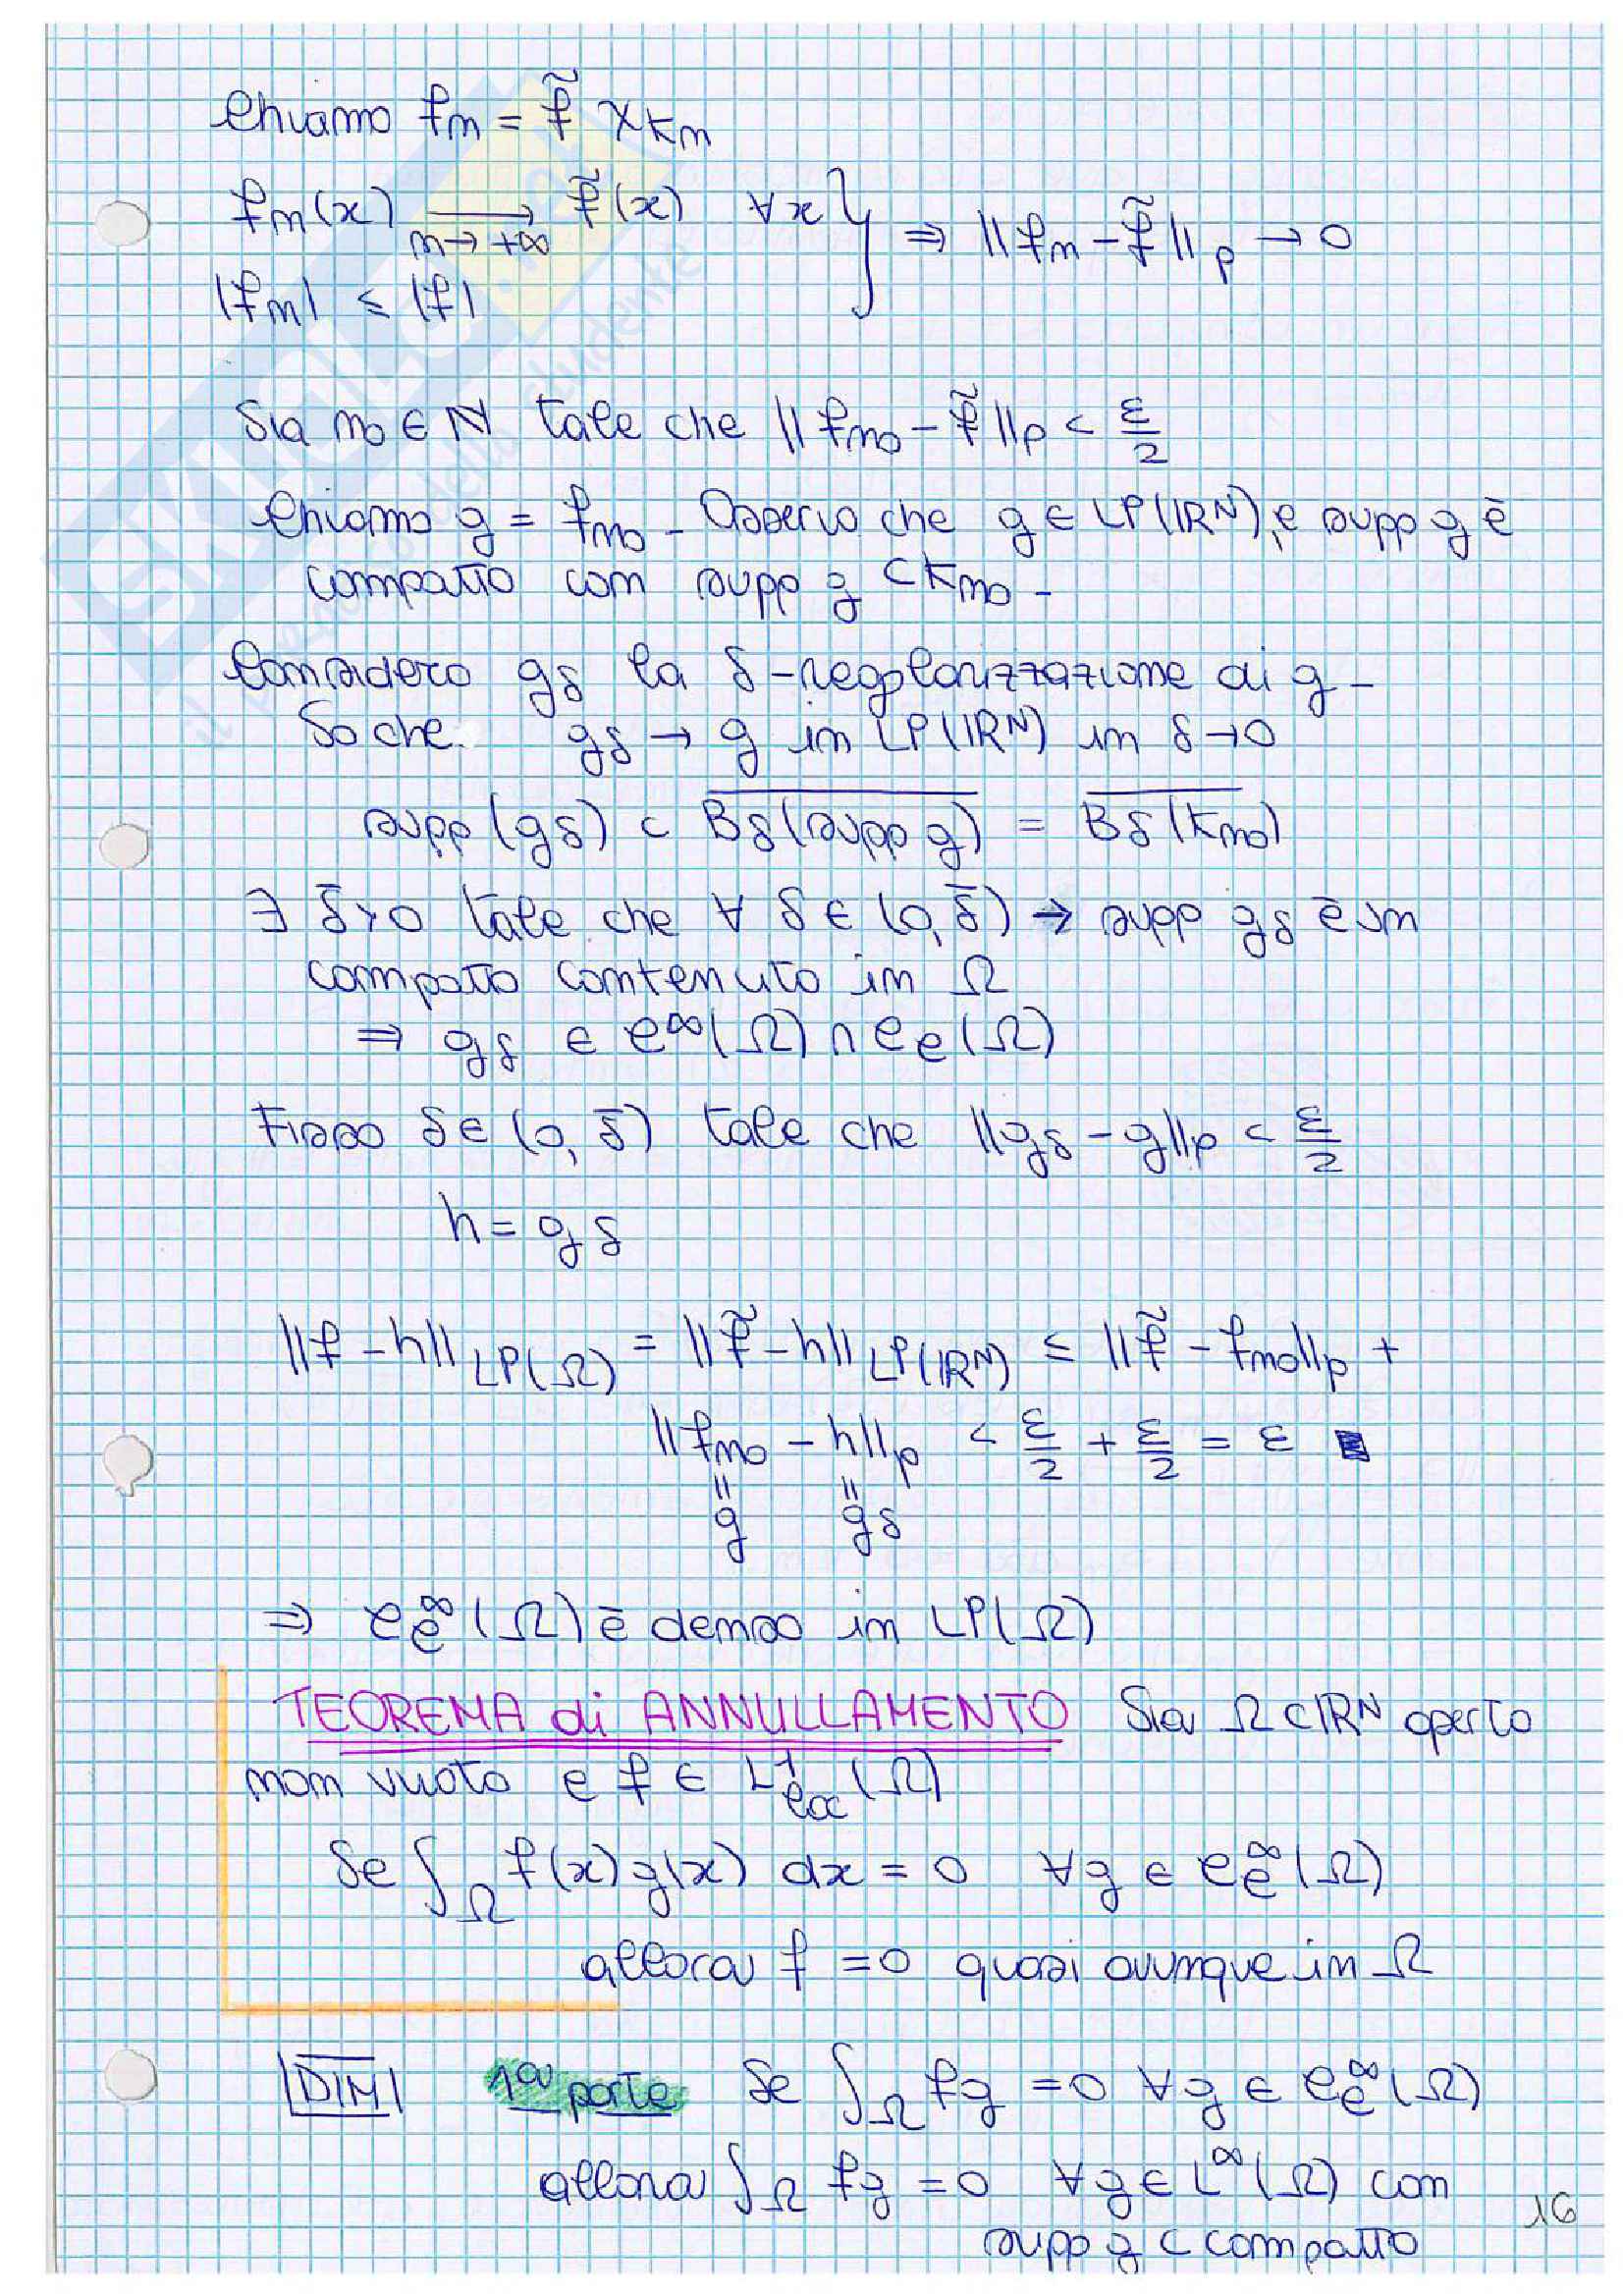 Chiamo fₙ = f̃ χ_Kₙ
fₙ(x) ⟶ f̃(x) ∀x } ⇒ ‖fₙ - f̃‖_p → 0
n→+∞
|fₙ| ≤ |f|
Sia n₀ ∈ ℕ tale che ‖f_n₀ - f̃‖_p < ε/2
Chiamo g = f_n₀ - Osservo che g ∈ L^p(ℝ^N), e supp g è
compatto con supp g ⊂ K_n₀ -
Considero g_δ la δ-regolarizzazione di g -
So che g_δ → g in L^p(ℝ^N) in δ→0
supp(g_δ) ⊂ \overline{B_δ(supp g)} = \overline{B_δ(K_n₀)}
∃ δ̄>0 tale che ∀ δ ∈ (0, δ̄) → supp g_δ è un
compatto contenuto in Ω
⇒ g_δ ∈ C^∞(Ω) ∩ C_c(Ω)
Fisso δ ∈ (0, δ̄) tale che ‖g_δ - g‖_p < ε/2
h = g_δ
‖f - h‖_L^p(Ω) = ‖f̃ - h‖_L^p(ℝ^N) ≤ ‖f̃ - f_n₀‖_p +
‖f_n₀ - h‖_p < ε/2 + ε/2 = ε ■
= =
g g_δ
⇒ C_c^∞(Ω) è denso in L^p(Ω)
TEOREMA di ANNULLAMENTO Sia Ω ⊂ ℝ^N aperto
non vuoto e f ∈ L¹_loc(Ω)
Se ∫_Ω f(x)g(x) dx = 0 ∀g ∈ C_c^∞(Ω)
allora f = 0 quasi ovunque in Ω
|DIM| 1ª parte Se ∫_Ω fg = 0 ∀g ∈ C_c^∞(Ω)
allora ∫_Ω fg = 0 ∀g ∈ L^∞(Ω) con
supp g ⊂ compatto
16